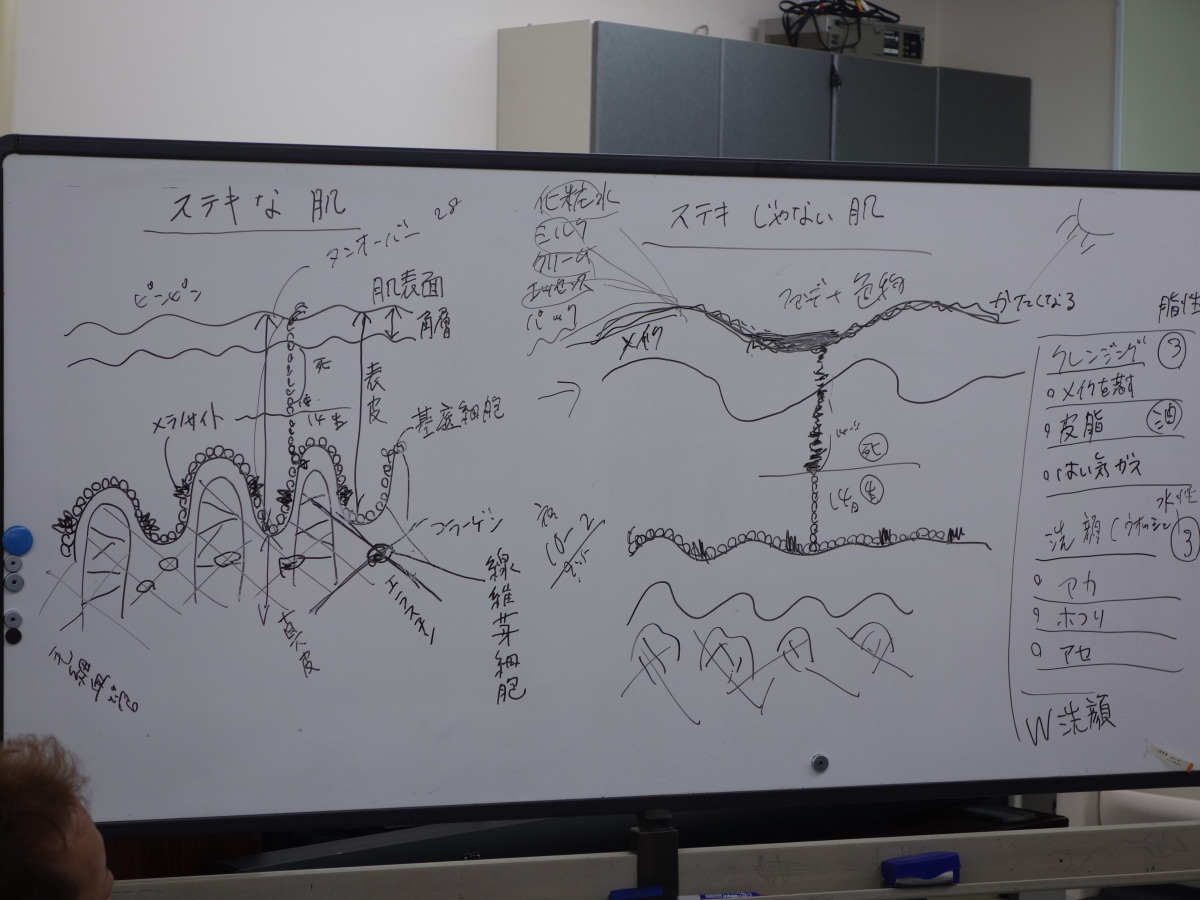 ステキな 肌
ターンオーバー 28
ピンピン
肌表面
角層
死
表皮
14生
メラノサイト
基底細胞
コラーゲン
エラスチン
線維芽細胞
真皮
化粧水
ミルク
クリーム
エッセンス
パック
ステキ じゃない 肌
メイク
かたくなる
死
14日 生
脂性
クレンジング ③
○メイクを落す
○皮脂 油
○はい気ガス
水性
洗顔(ウオッシュ) ③
○ アカ
○ ホコリ
○ アセ
W洗顔